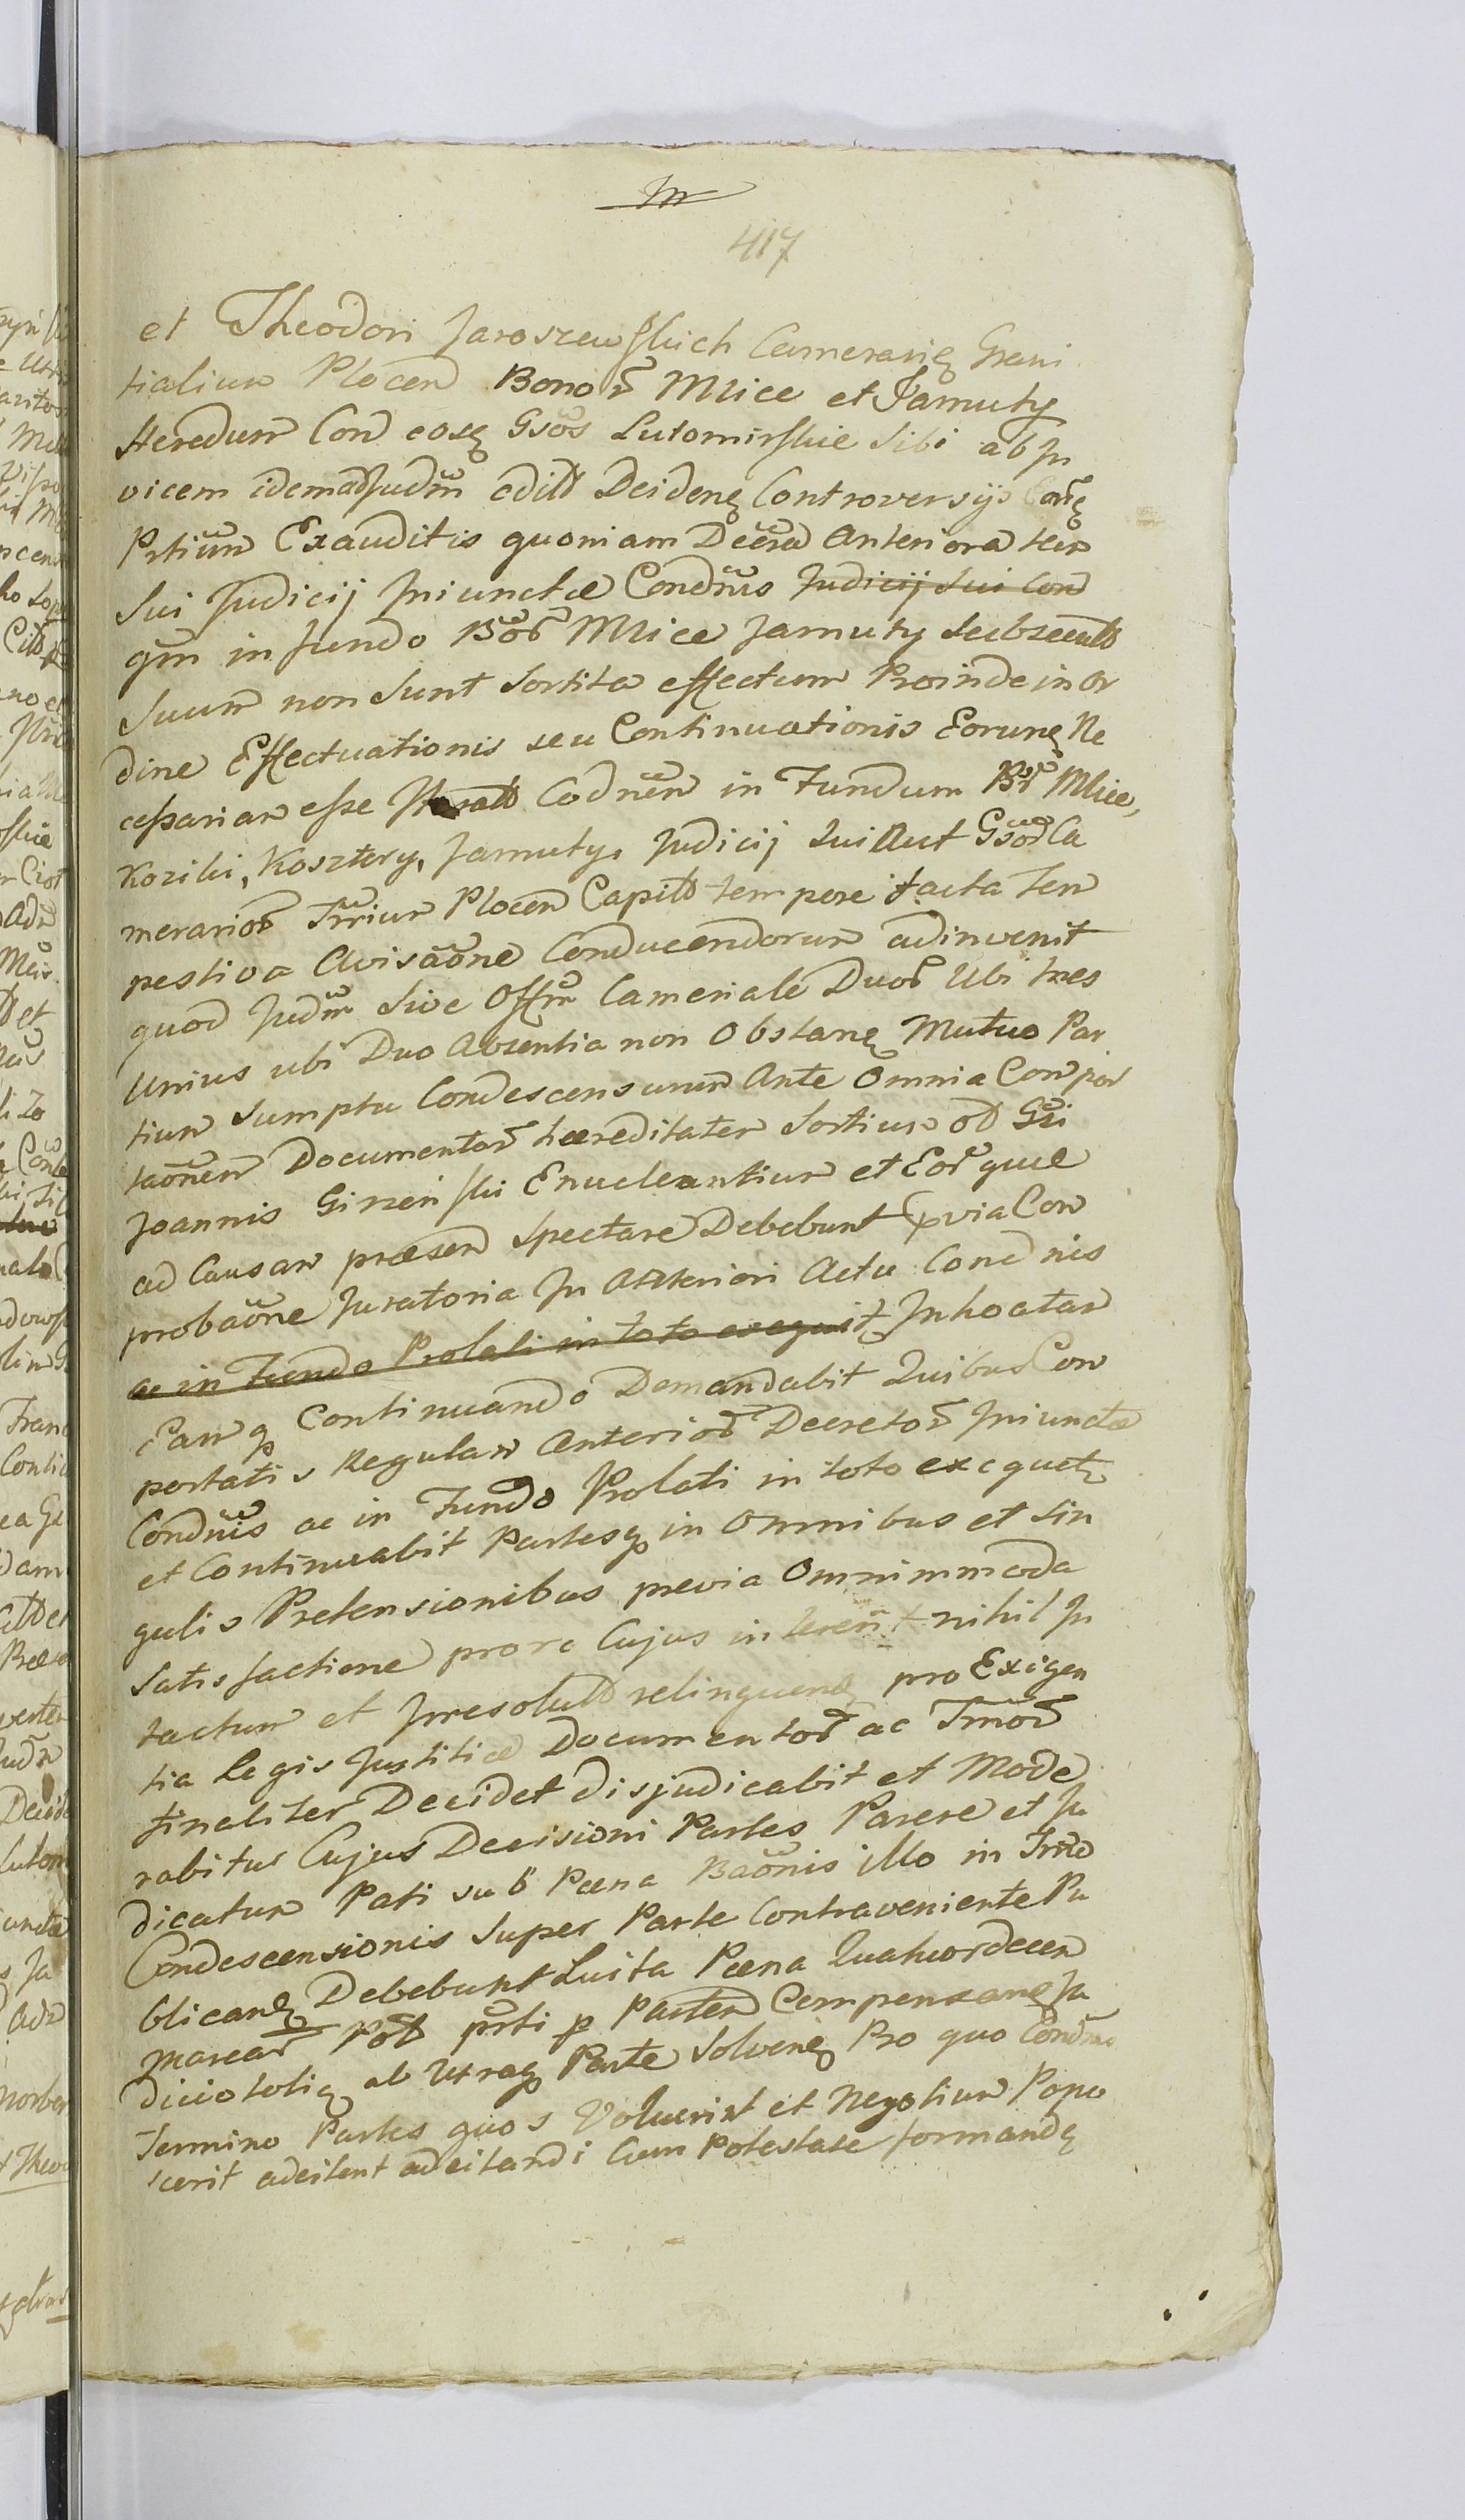 417
et Theodori Jaroszewskich Camerarię Grani
tialium Plocen Bonor Mlice et Jamuty
Heredum Con eosę Gsos Lutomirskie Sibi ab In
vicem idem adJudm edits Deidenę Controversijs
Prtium Exauditis quoniam Decra Anteriora
Sui Judicij Iniunctæ Condnis Judicij Sui Con
qm in fundo Bor Mlice Jamuty Subsecuts
Suum non Sunt Sortita effectum Proinde in Or
dine Effectuationis seu Continuationis Eorunę Ne
cessariam esse Condnem in Fundum Br Mlice,
Koziki, Kosztery, Jamuty, Judicij Sui Aut Gsor Ca
merarior Trrium Plocen Capits tempore facta Tem
pestiva Avisaone Conducendorum adinvenit
quod Judm Sive Offm Cameriale Duor Ubi tres
Unius ubi Duo Absentia non Obstanę Mutuo Par
tium Sumptu Condescensurum Ante Omnia Compor
taonem Documentor hæreditatem Sortium Gsi
Joannis Girzenski Enucleantium et Eor quæ
ad Causam præsen Spectare Debebunt prævia Com
probaone Juratoria In Anteriori Actu Condnis
ac in Fundo Prolati in toto exequit Inhoatam
Eamq Continuando Demandabit Quibus Com
portatis Regulam Anterior Decretor Iniunctæ
Condnis ac in Fundo Prolati in toto exequet
et Continuabit Partesq in Omnibus et Sin
gulis Pretensionibus previa Omnimmoda
Satisfactione pro re Cujus interent nihil In
tactum et Irresoluts relinquenę pro Exigen
tia Legis Justitiæ Documentor ac Trmor
finaliter Decidet disjudicabit et Mode
rabitur Cujus Decisioni Partes Parere et Ju
dicatum Pati sub Pæna Baonis illo in Trmo
Condescensionis Super Parte Contraveniente Pu
blicanę Debebunt Luita Pæna Quatuordecem
Marcar Pol prti p Partem Compensanę Ju
diciototię ab Utraq Parte Solvenę Pro quo Condnis
Termino Partes quos Voluerint et Negotium Popo
scerit adcitent adcitandi Cum Potestate formandę